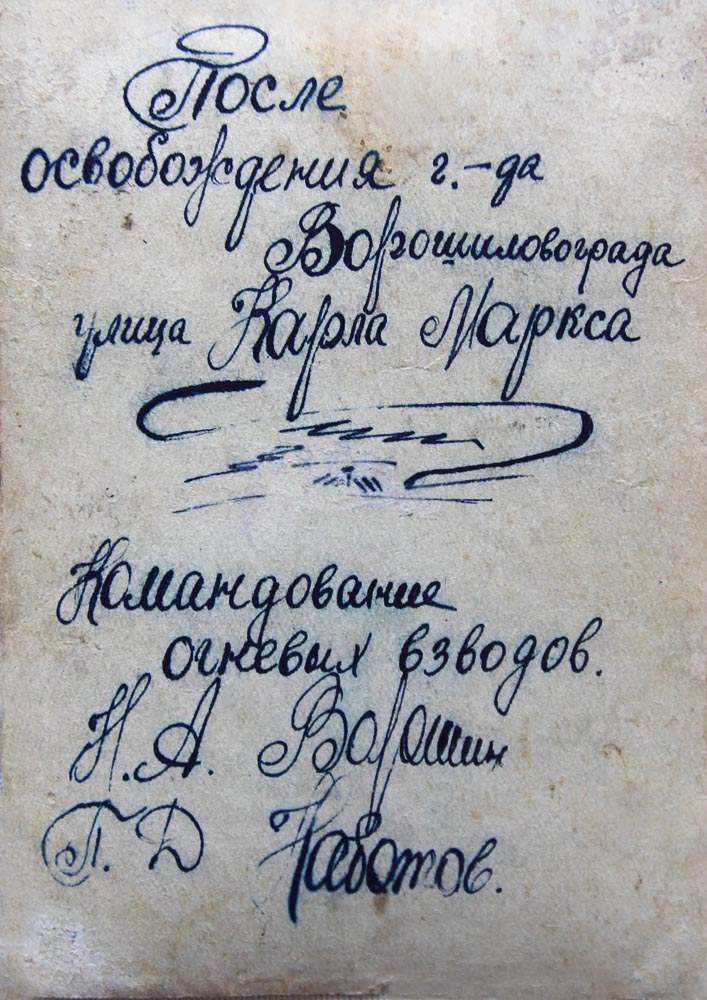 После
освобождения г.-да
Ворошиловограда
улица Карла Маркса
Командование
огневых взводов.
Н. А. Ворошин
П. Д Наботов.